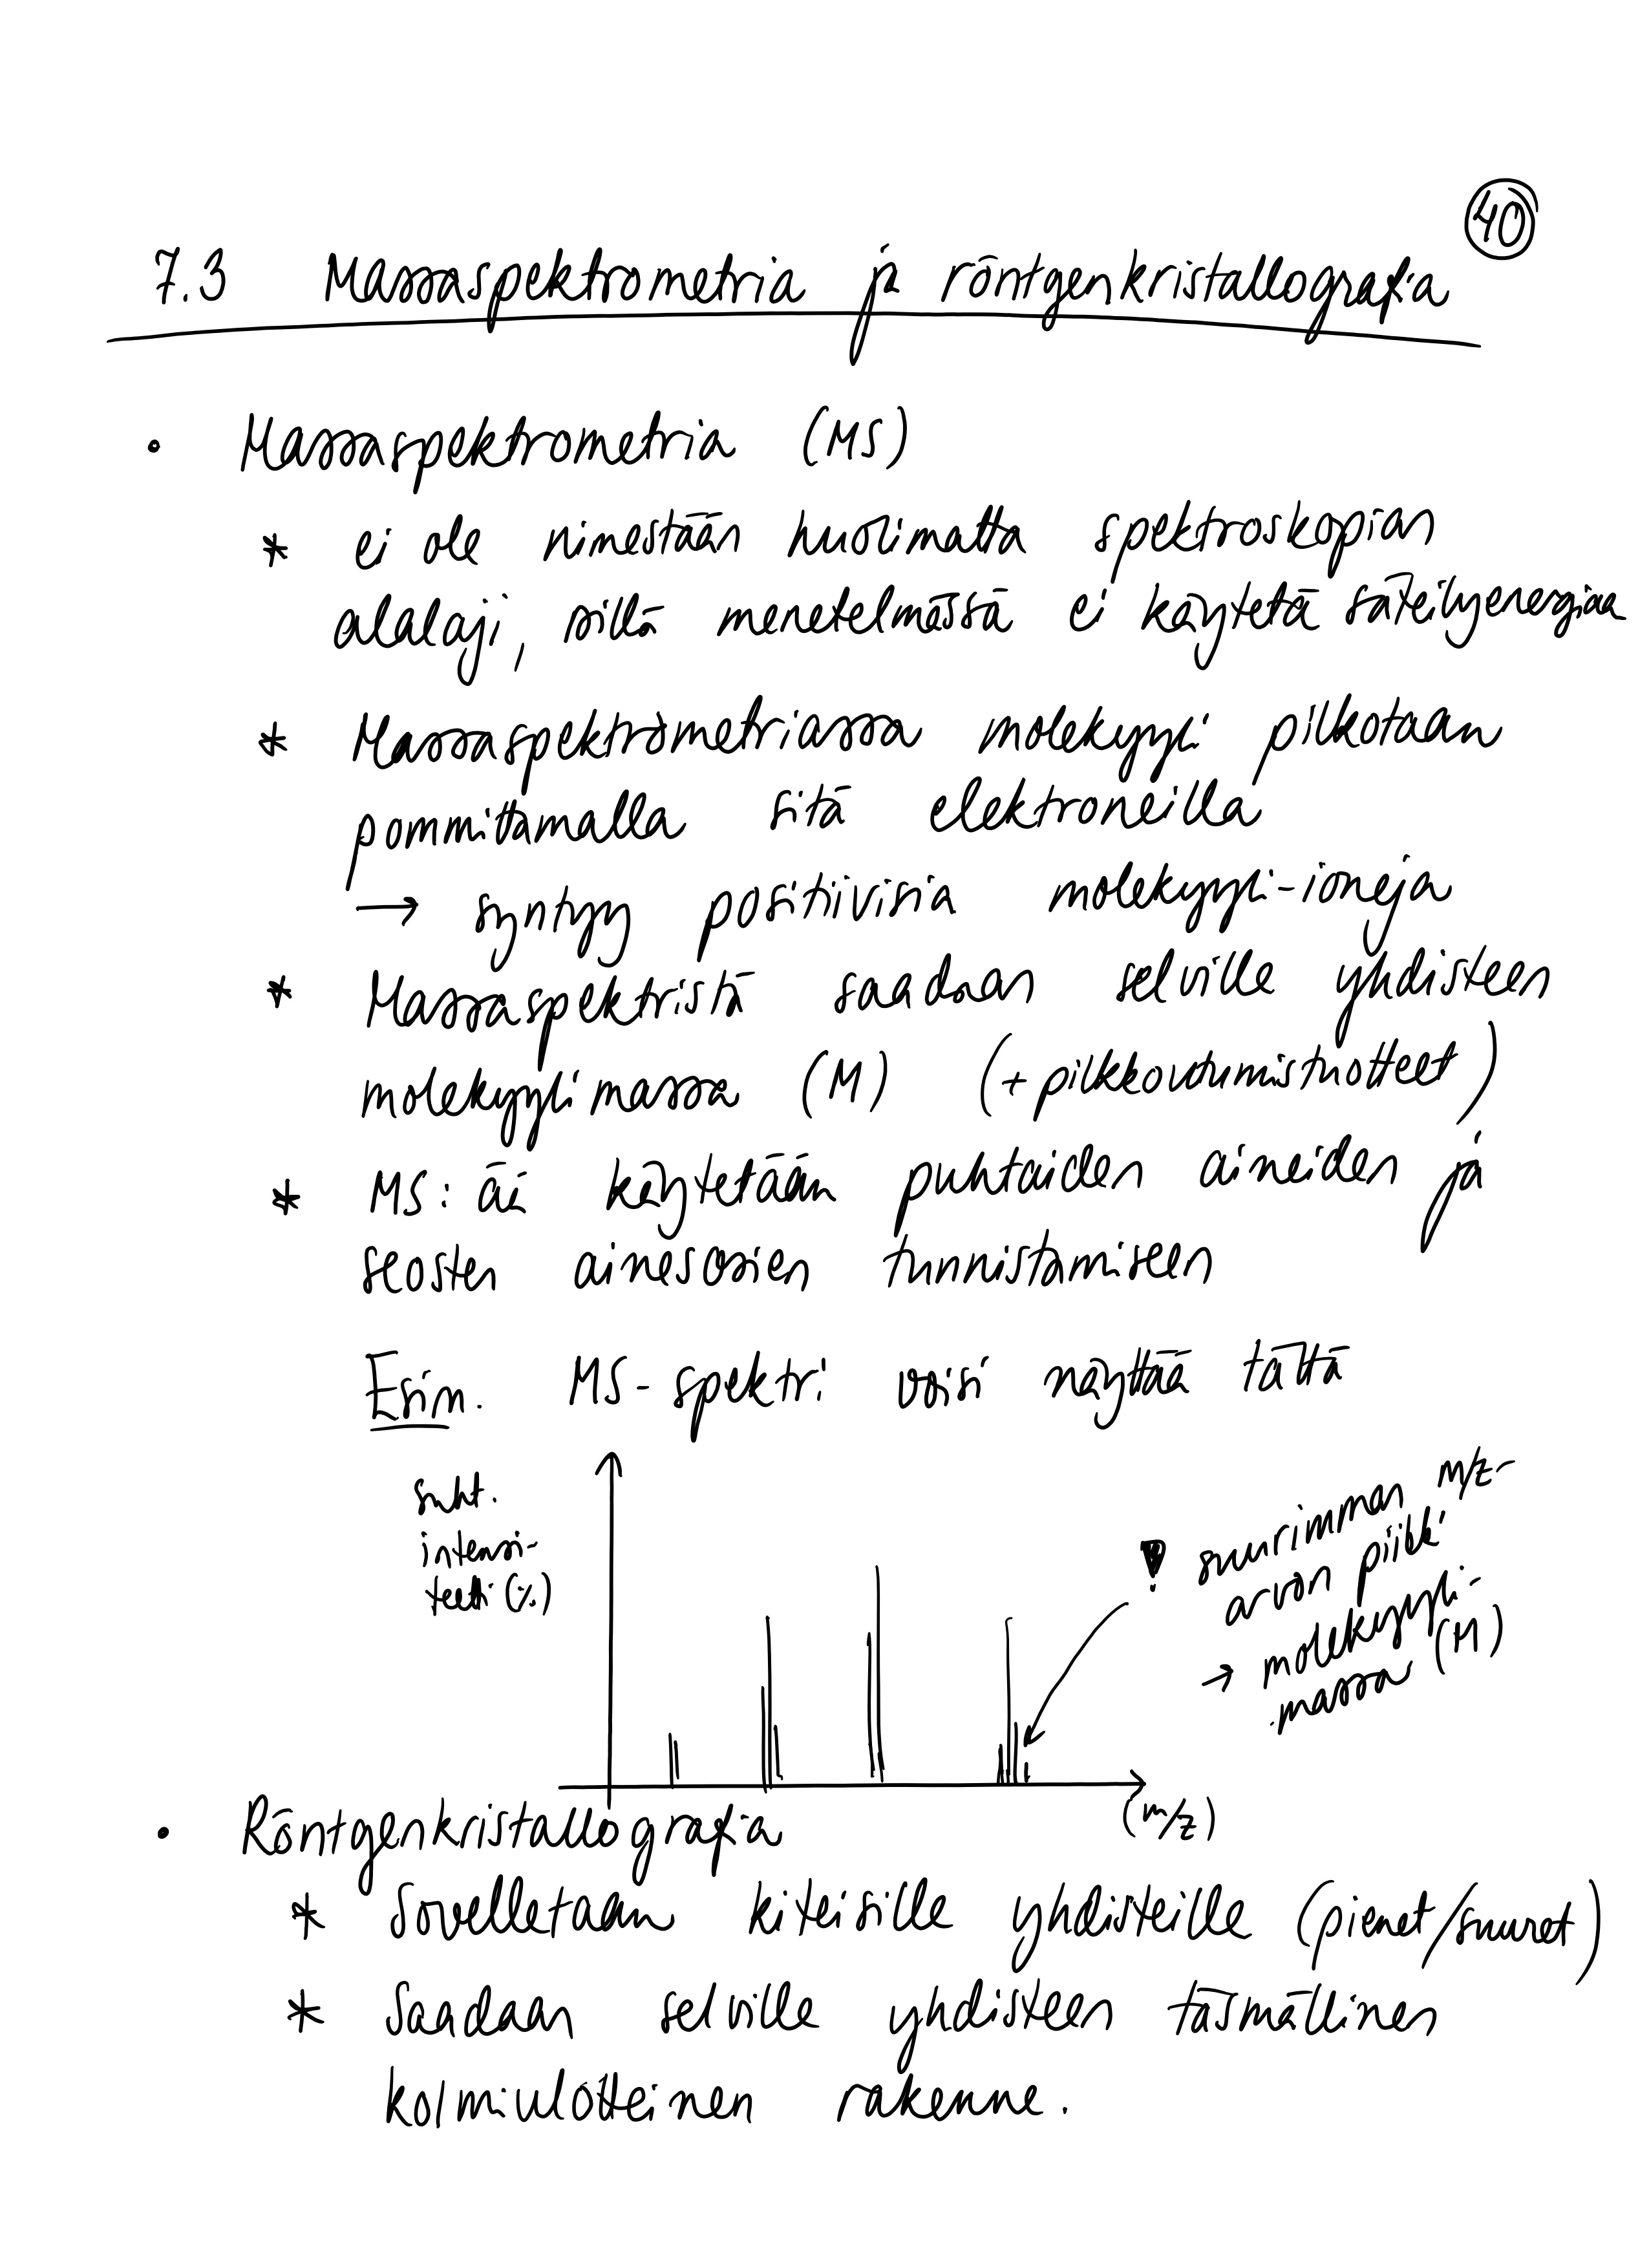 40
7.3 Massaspektrometria ja röntgenkristallografia
• Massaspektrometria (MS)
* ei ole nimestään huolimatta spektroskopian
alalaji, sillä menetelmässä ei käytetä säteilyenergiaa
* Massaspektrometriassa molekyyli pilkotaan
pommittamalla sitä elektroneilla
→ syntyy positiivisia molekyyli-ioneja
* Massaspektristä saadaan selville yhdisteen
molekyylimassa (M) (+ pilkkoutumistuotteet)
* MS:ää käytetään puhtaiden aineiden ja
seosten ainesosien tunnistamiseen
Esim. MS-spektri voisi näyttää tältä
suht.
intensi-
teetti (%)
! suurimman m/z-
arvon piikki
→ molekyyli-
massa (M)
(m/z)
• Röntgenkristallografia
* Sovelletaan kiteisille yhdisteille (pienet/suuret)
* Saadaan selville yhdisteen täsmällinen
kolmiulotteinen rakenne.